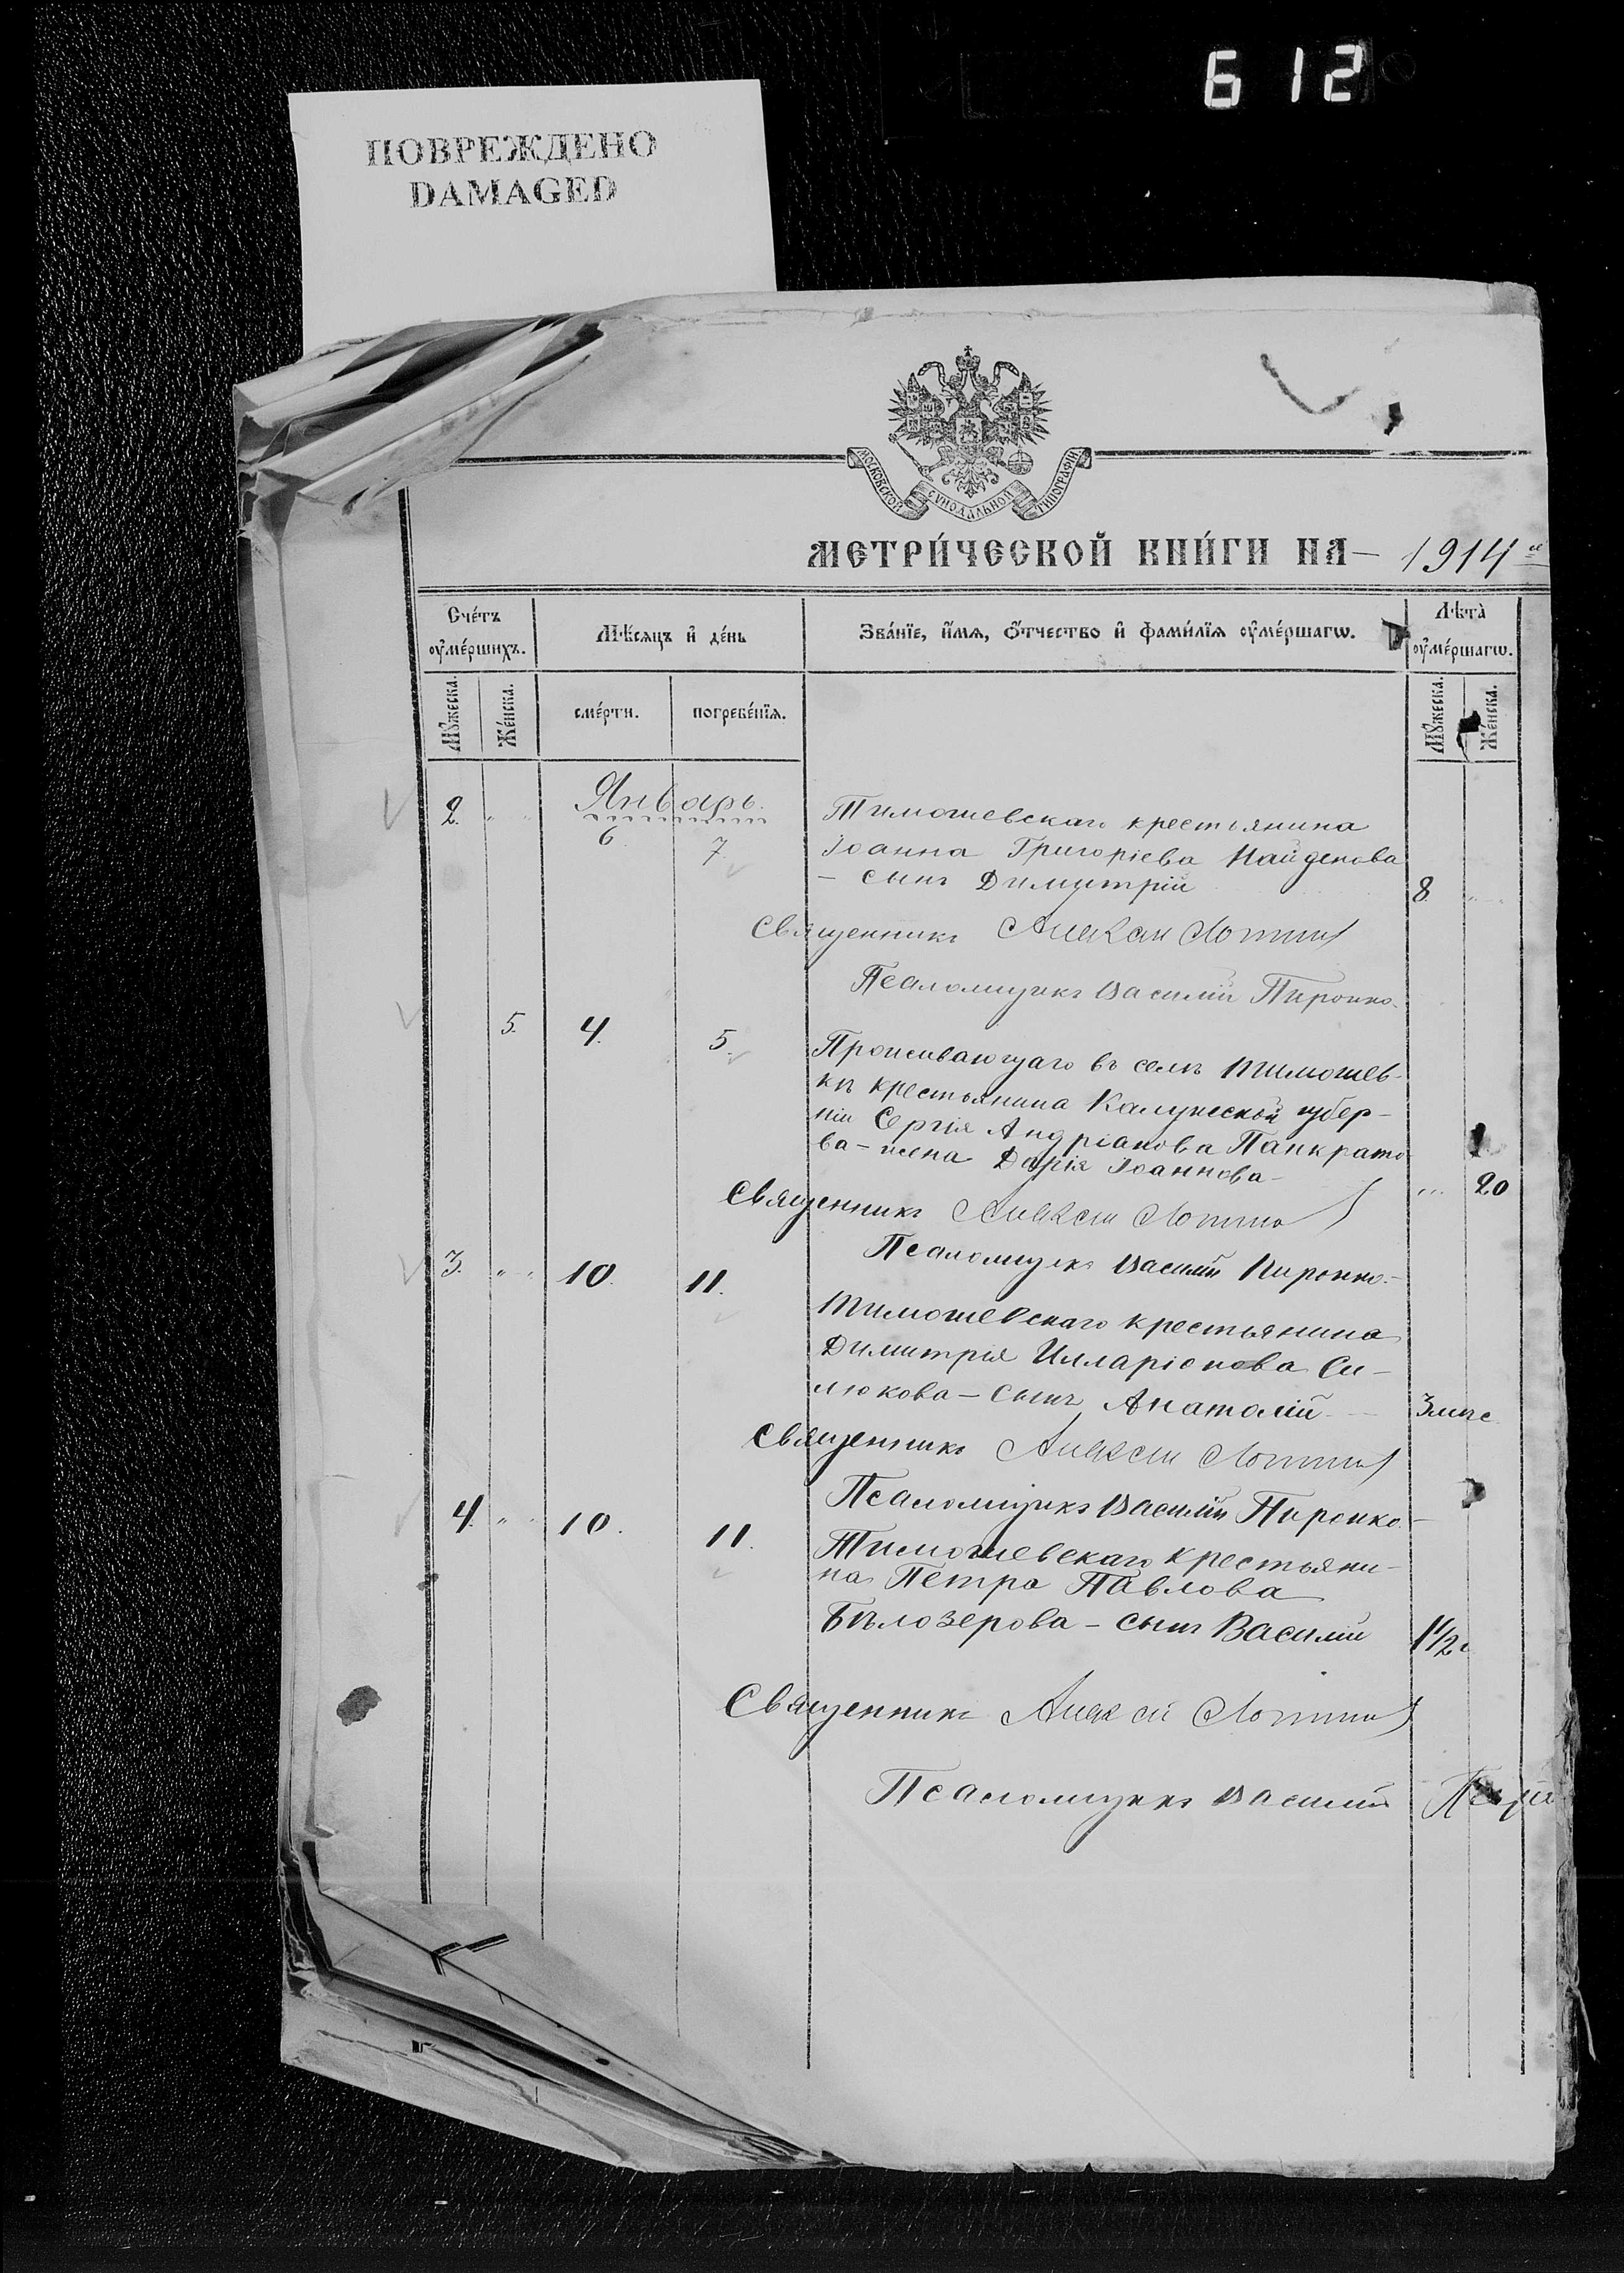 612
ПОВРЕЖДЕНО
DAMAGED
МОСКОВСКОЙ СѴНОДАЛЬНОЙ ТИПОГРАФІИ
МЕТРИ́ЧЕСКОЙ КНИ́ГИ НА 1914 й
Сче́тъ ᲂу҆ме́ршихъ.
Мѣ́сяцъ и҆ де́нь
Зва́нїе, и҆́мѧ, ѻ҆́тчество и҆ фамилїѧ ᲂу҆ме́ршагѡ.
Лѣта̀ ᲂу҆ме́ршагѡ.
Мꙋ́жеска.
Же́нска.
сме́рти.
погребе́нїѧ.
Мꙋ́жеска.
Же́нска.
Январь.
2. " 6 7. Тимошевскаго крестьянина
Іоанна Григоріева Найденова
– сынъ Димитрій 8. "
Священникъ Алексій
Псаломщикъ Василій Пиронко.
5. 4. 5. Проживающаго въ селѣ Тимошев-
кѣ крестьянина Калужской губер-
ніи Сергія Андріанова Панкрато
ва – жена Дарія Іоаннова – " 20
Священникъ Алексій
Псаломщикъ Василій Пиронко. –
3. " 10. 11. Тимошевскаго крестьянина
Димитрія Илларіонова Си-
люкова – сынъ Анатолій – 3 мѣс
Священникъ Алексій
Псаломщикъ Василій Пиронко. –
4. " 10. 11. Тимошевскаго крестьяни-
на Петра Павлова
Бѣлозерова – сынъ Василій 1 1/2 г
Священникъ Алексій
Псаломщикъ Василій